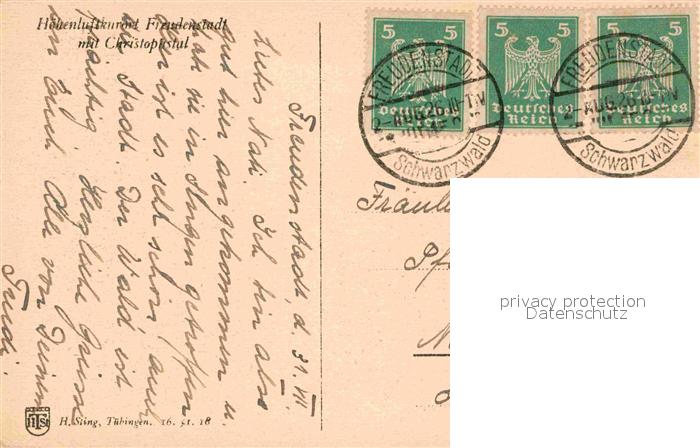 Höhenluftkurort Freudenstadt
mit Christophstal
5 5
5 5
5 5
Deutsches
Reich
Deutsches
Reich
Deutsches
Reich
FREUDENSTADT
Schwarzwald
FREUDENSTADT
Schwarzwald
Freudenstadt, d. 31. VII.
Liebes Mati. Ich bin also
gut hier angekommen u.
hab sie in Horgen getroffen
Hier ist es sehr schön, auch
die Stadt. Der Wald ist
prächtig. Herzliche Grüsse
an Euch Alle von Deinem
Trudi.
Fräule
Pf
privacy protection
Datenschutz
HST
H. Sting, Tübingen. 16. 51. 18